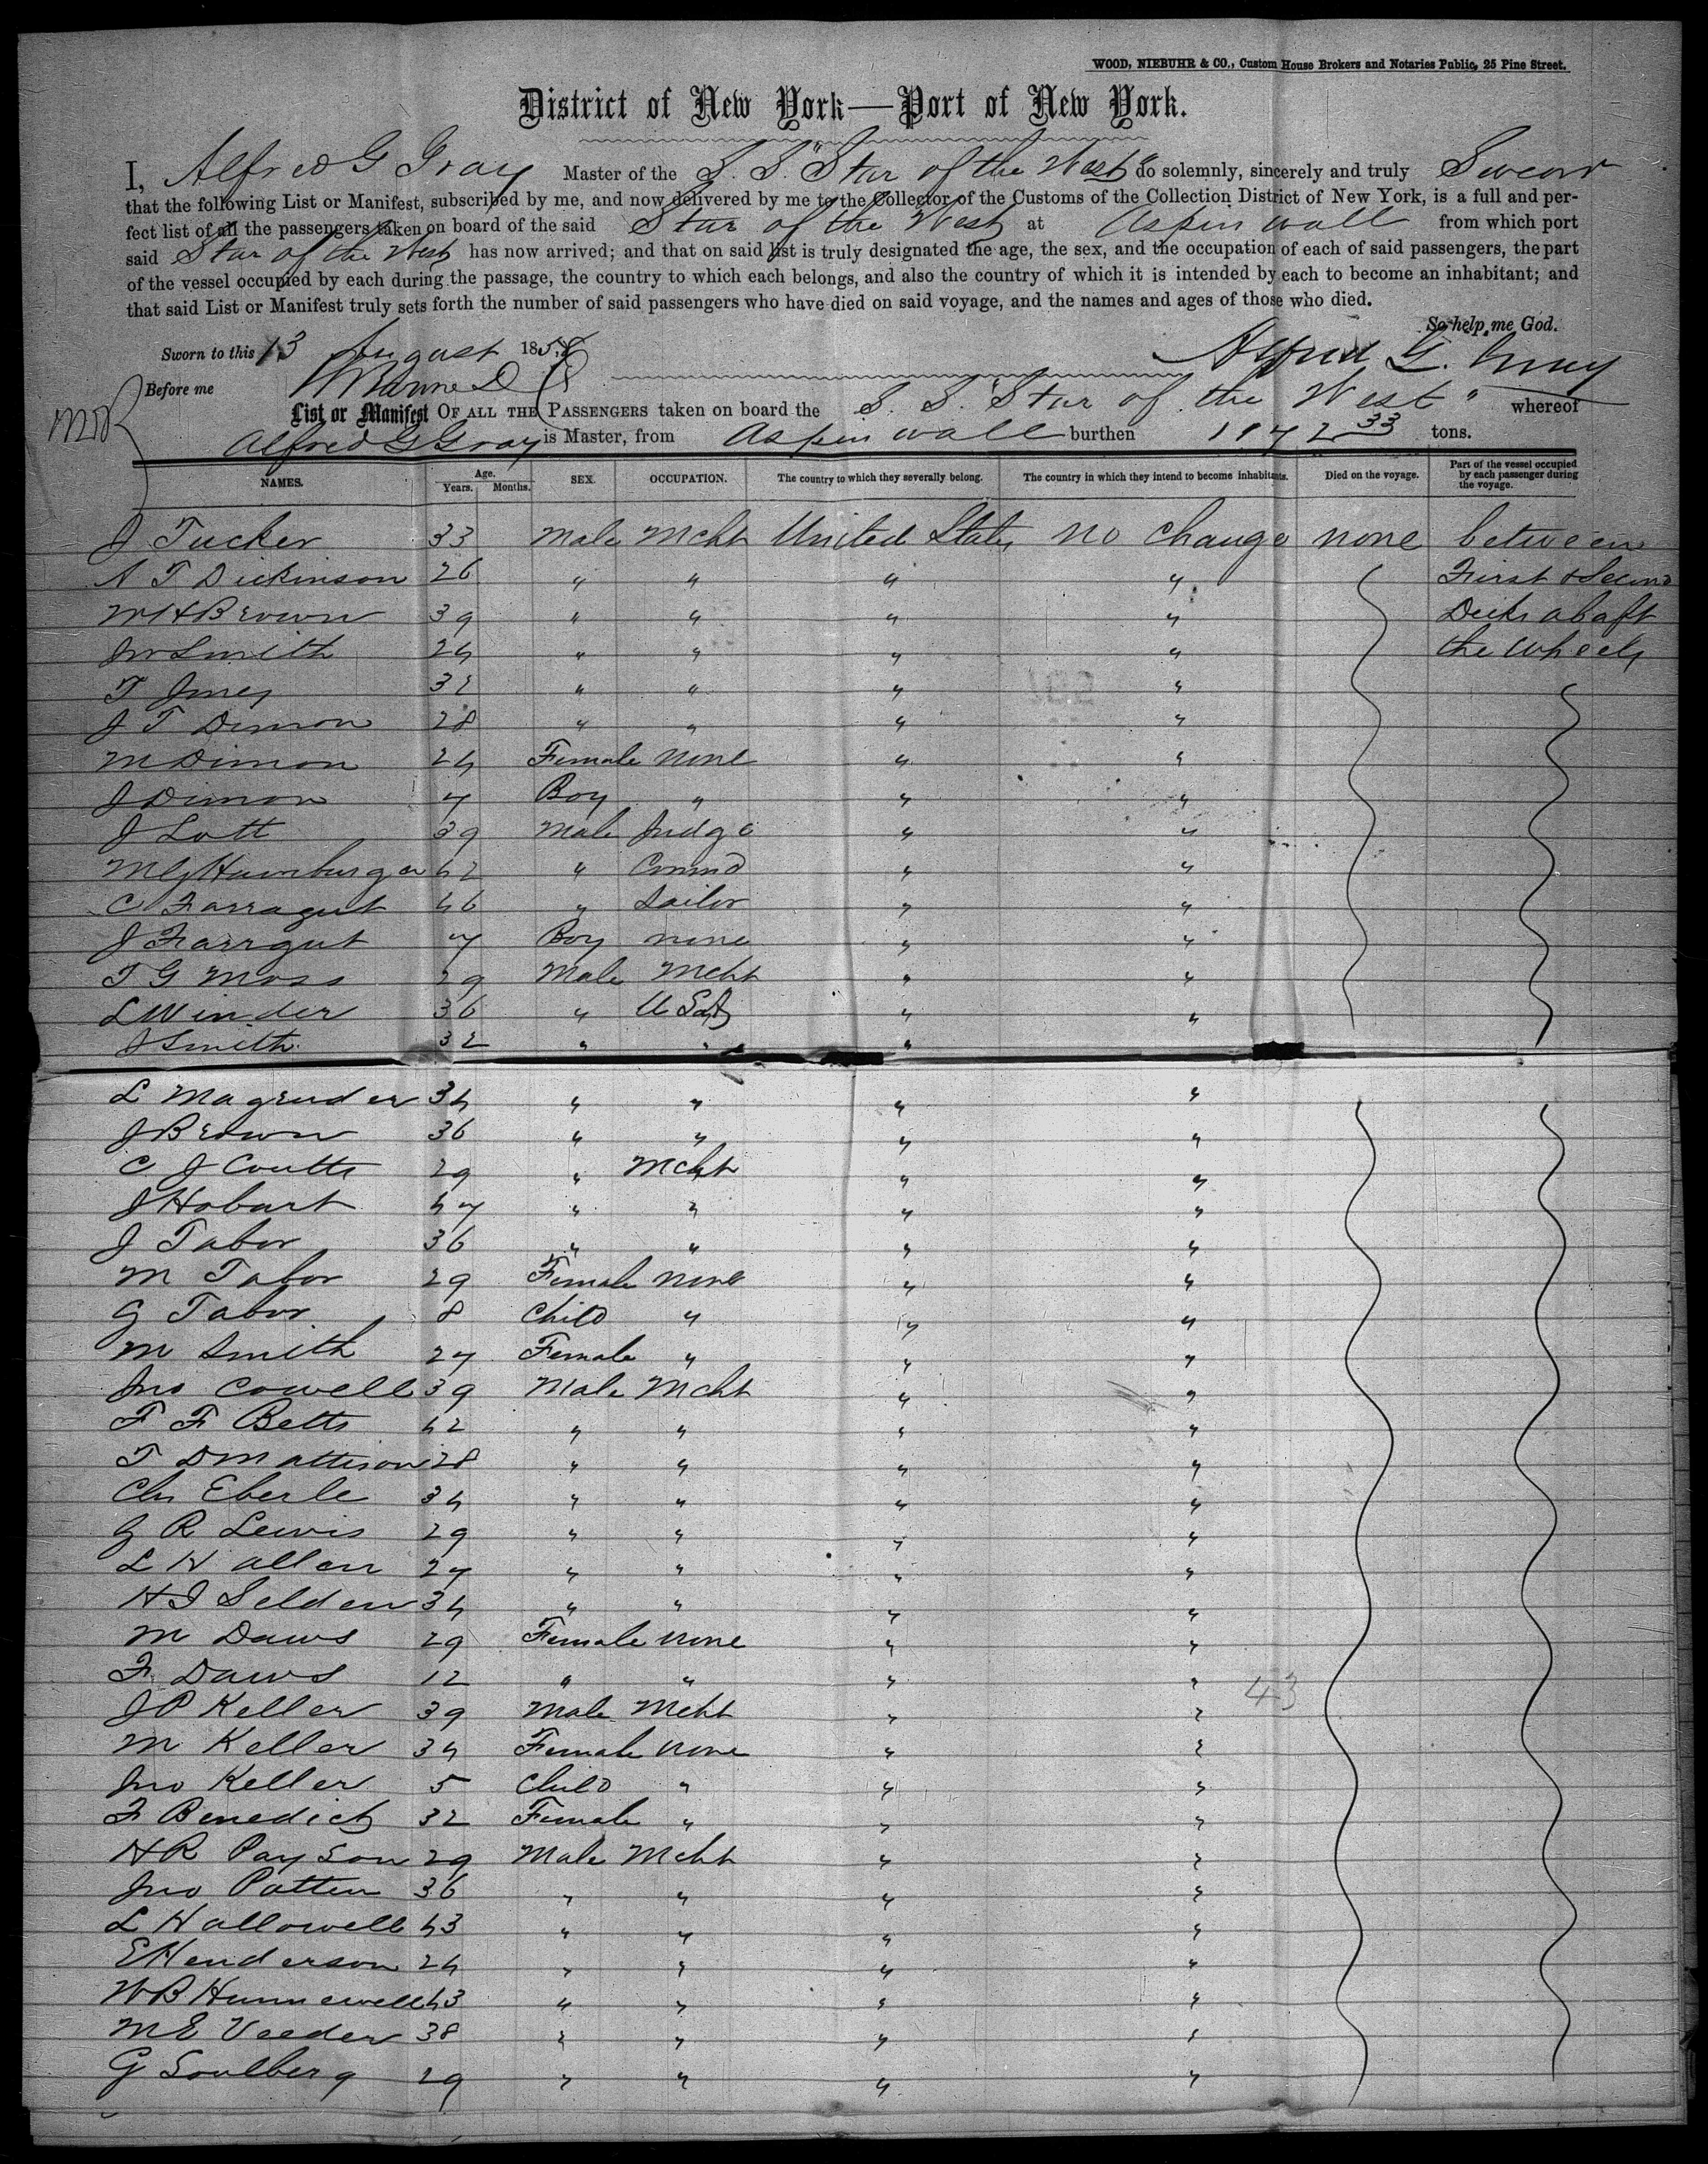 WOOD, NIEBUHR & CO., Custom House Brokers and Notaries Public, 25 Pine Street.
District of New York—Port of New York.
I, Alfred G Gray Master of the S. S. "Star of the West" do solemnly, sincerely and truly Swear
that the following List or Manifest, subscribed by me, and now delivered by me to the Collector of the Customs of the Collection District of New York, is a full and per-
fect list of all the passengers taken on board of the said Star of the West at Aspinwall from which port
said Star of the West has now arrived; and that on said list is truly designated the age, the sex, and the occupation of each of said passengers, the part
of the vessel occupied by each during the passage, the country to which each belongs, and also the country of which it is intended by each to become an inhabitant; and
that said List or Manifest truly sets forth the number of said passengers who have died on said voyage, and the names and ages of those who died.
So help me God.
Sworn to this 13 August 1858
Alfred G. Gray
Before me
List or Manifest OF ALL THE PASSENGERS taken on board the S. S. "Star of the West" whereof
Alfred G Gray is Master, from Aspinwall burthen 1172 33 tons.
NAMES. Age. Years. Months. SEX. OCCUPATION. The country to which they severally belong. The country in which they intend to become inhabitants. Died on the voyage. Part of the vessel occupied by each passenger during the voyage.
J Tucker 33 Male Mcht United States no change none between
N T Dickinson 26 " " " " First & Second
W H Brown 39 " " " " Decks abaft
Jno Smith 24 " " " " the Wheels
T Jones 32 " " " "
J T Dimon 28 " " " "
M Dimon 24 Female none " "
J Dimon 7 Boy " " "
J Lott 39 Male Judge " "
M G Hamburger 42 " " "
C Farragut 46 " Sailor " "
J Farrgut 7 Boy none " "
T G Moss 29 Male Mcht " "
L Winder 36 " " "
J Smith 32 " " "
L Magruder 34 " " " "
J Brown 36 " " " "
C J Coutts 29 " Mcht " "
J Hobart 47 " " " "
J Tabor 36 " " " "
M Tabor 29 Female none " "
G Tabor 8 Child " " "
M Smith 27 Female " " "
Jno Cowell 39 Male Mcht " "
F F Betts 42 " " " "
T D Mattison 28 " " " "
Chs Eberle 34 " " " "
G R Lewis 29 " " " "
L H Allen 27 " " " "
H J Selden 34 " " " "
M Daws 29 Female none " "
F Daws 12 " " " "
43
J P Keller 39 Male Mcht " "
M Keller 34 Female none " "
Jno Keller 5 Child " " "
F Benedict 32 Female " " "
H R Payson 29 Male Mcht " "
Jno Patten 36 " " " "
L Hallowell 43 " " " "
E Henderson 24 " " " "
W B Hunnewell 43 " " " "
M E Veeder 38 " " " "
G Soulberg 29 " " " "